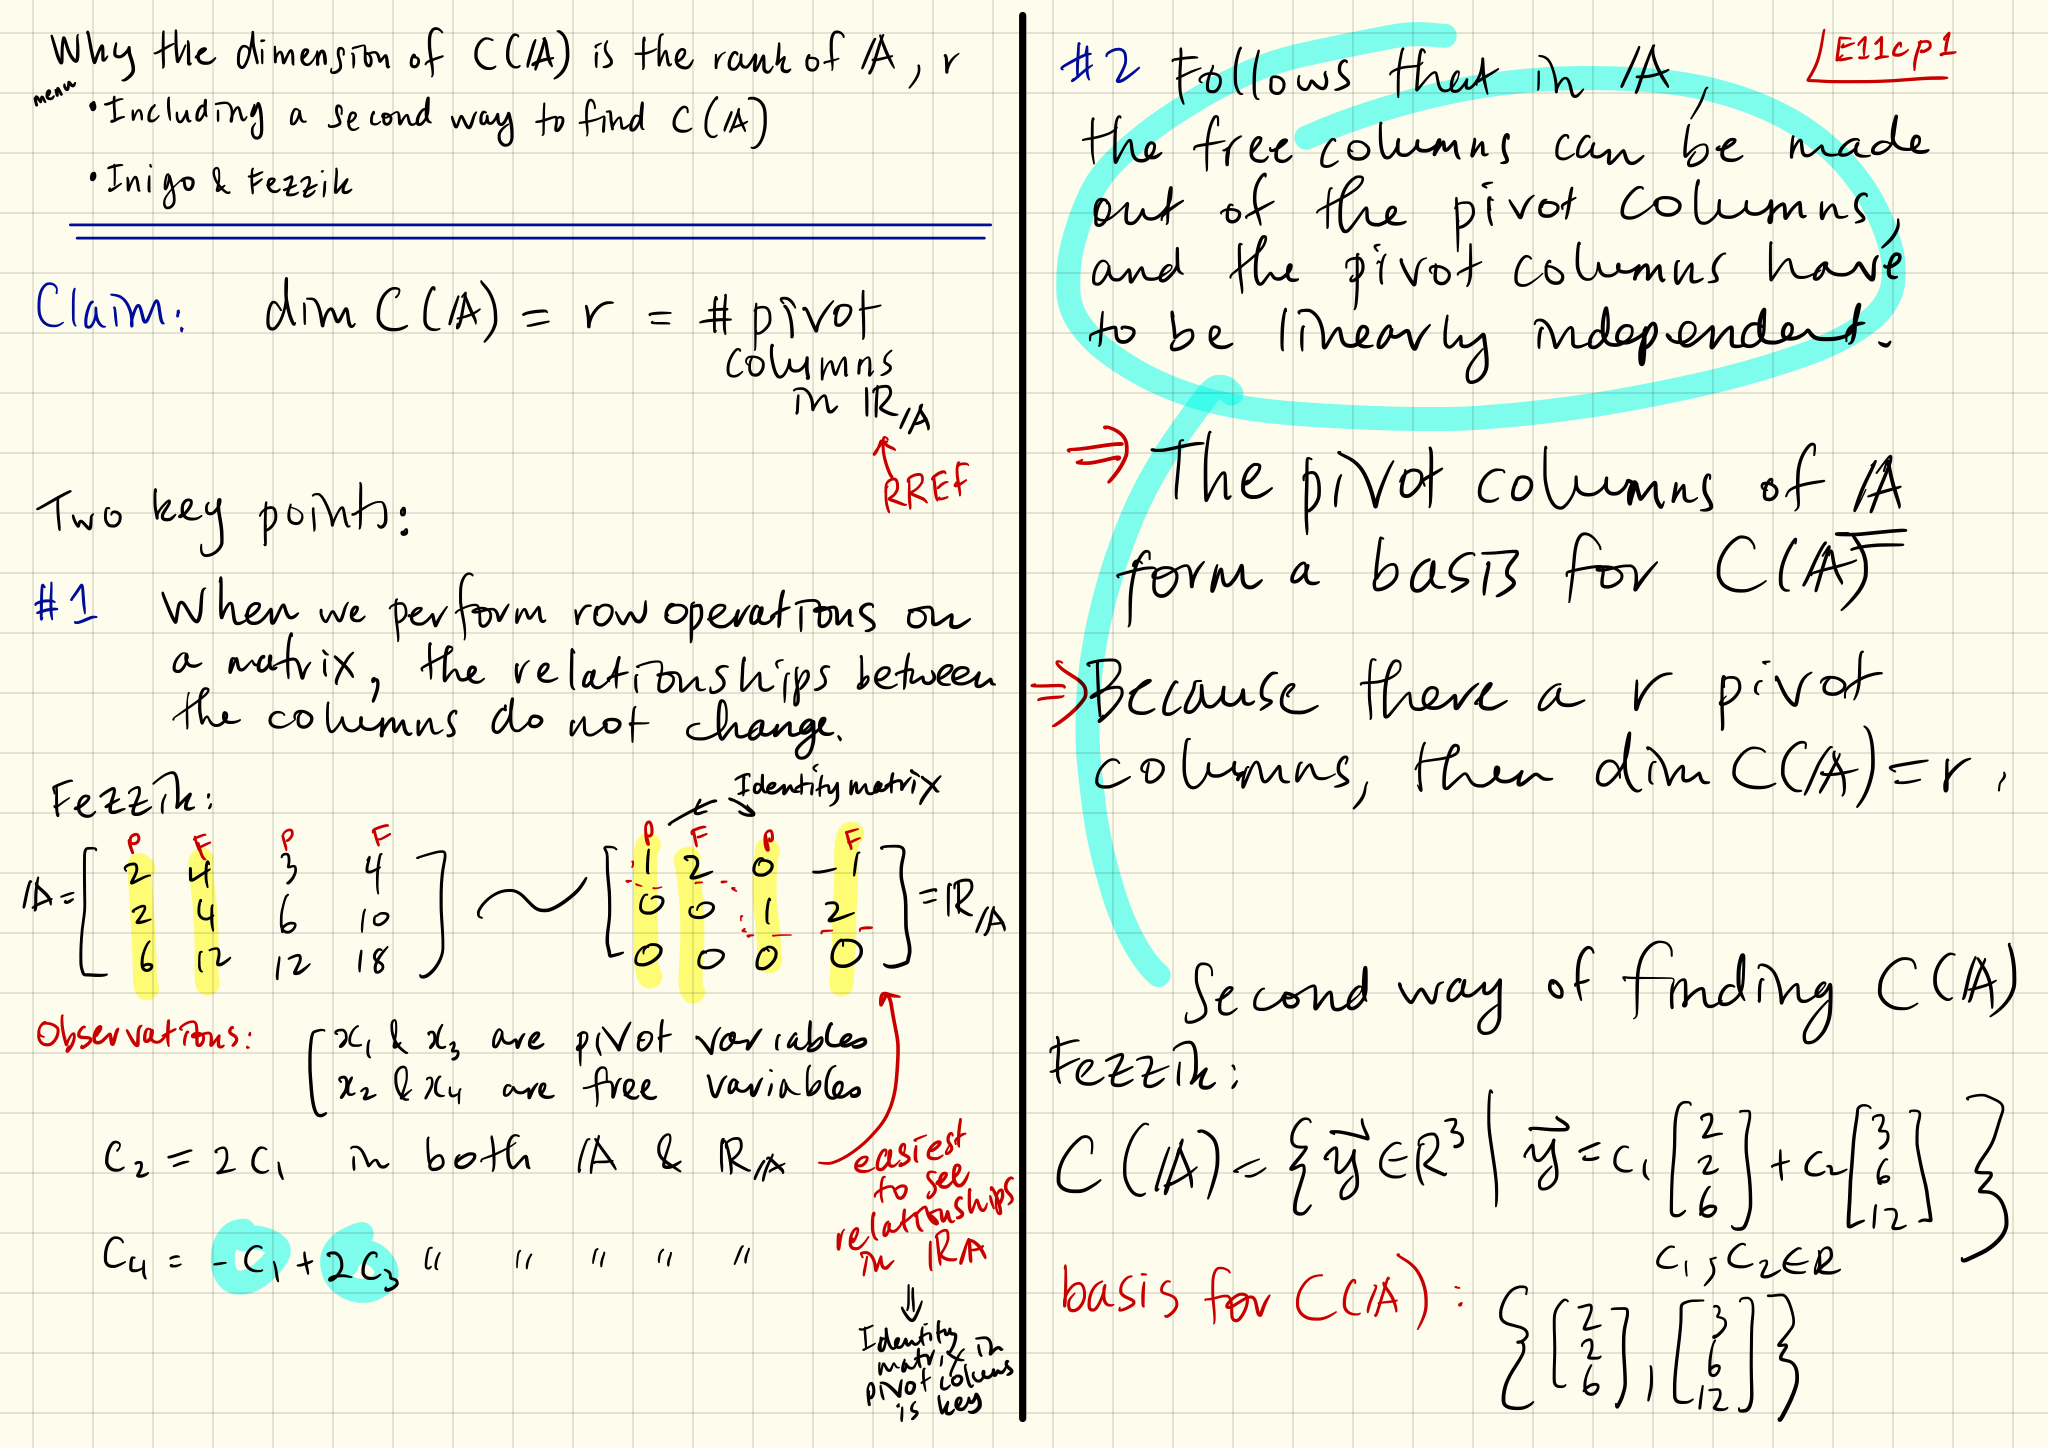 Why the dimension of C(A) is the rank of A, r
menu
• Including a second way to find C(A)
• Inigo & Fezzik
Claim: dim C(A) = r = # pivot
columns
in R_A
RREF
Two key points:
#1 When we perform row operations on
a matrix, the relationships between
the columns do not change.
Fezzik:
Identity matrix
P F P F
P F P F
A = [2 4 3 4; 2 4 6 10; 6 12 12 18] ~ [1 2 0 -1; 0 0 1 2; 0 0 0 0] = R_A
Observations: x₁ & x₃ are pivot variables
x₂ & x₄ are free variables
C₂ = 2C₁ in both A & R_A
C₄ = -C₁ + 2C₃ " " " " "
easiest
to see
relationships
in R_A
⇓
Identity
matrix in
pivot colums
is key
E11cp1
#2 Follows that in A,
the free columns can be made
out of the pivot columns,
and the pivot columns have
to be linearly independent.
⇒ The pivot columns of A
form a basis for C(A)
⇒ Because there a r pivot
columns, then dim C(A) = r.
Second way of finding C(A)
Fezzik:
C(A) = { y⃗ ∈ R³ | y⃗ = c₁ [2 2 6] + c₂ [3 6 12] }
c₁, c₂ ∈ R
basis for C(A): { [2 2 6], [3 6 12] }